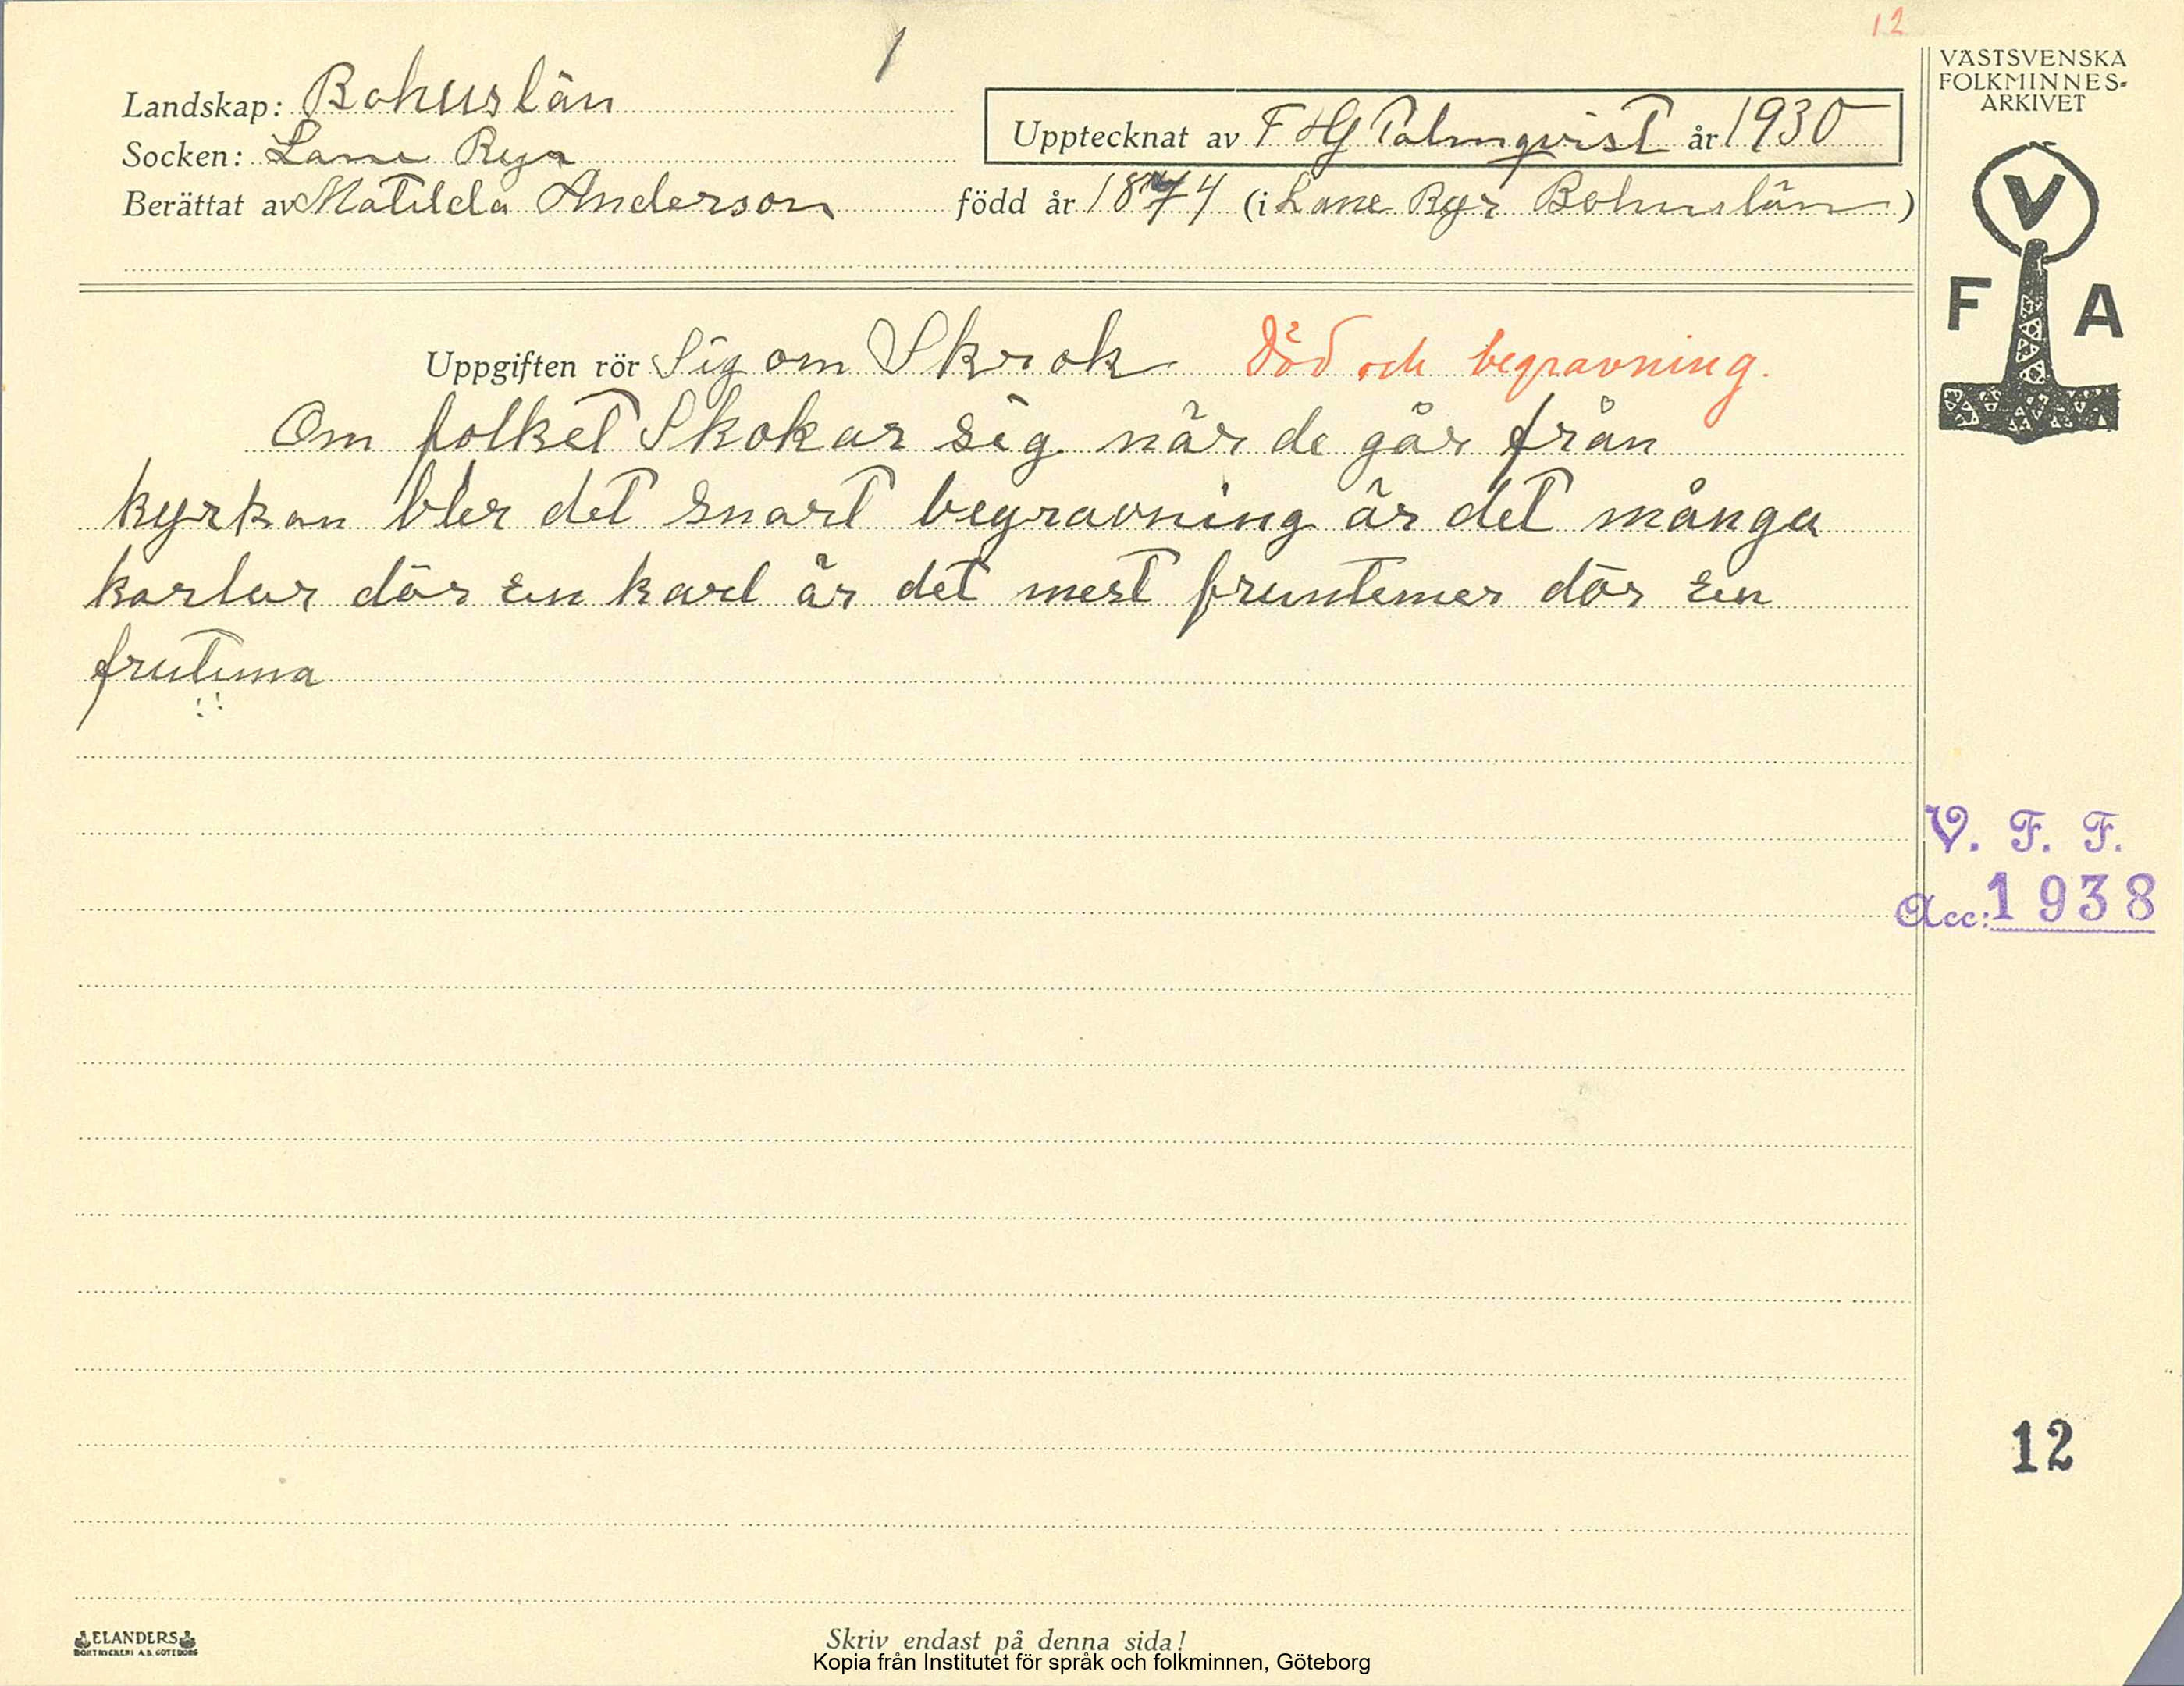 12
1
VÄSTSVENSKA
FOLKMINNES-
ARKIVET
Landskap: Bohuslän
Upptecknat av F HG Palmqvist år 1930
Socken: Lane Ryr
Berättat av Matilda Anderson född år 1874 (i Lane Ryr Bohuslän)
V
F A
Uppgiften rör Sig om Skrok Död och begravning.
Om folket Skokar sig när de går från
kyrkan bler det snart begravning är det många
karlar dör en karl är det mest fruntemer dör en
frutima
V. F. F.
Acc: 1938
12
ELANDERS
BOKTRYCKERI A.B. GÖTEBORG
Skriv endast på denna sida!
Kopia från Institutet för språk och folkminnen, Göteborg